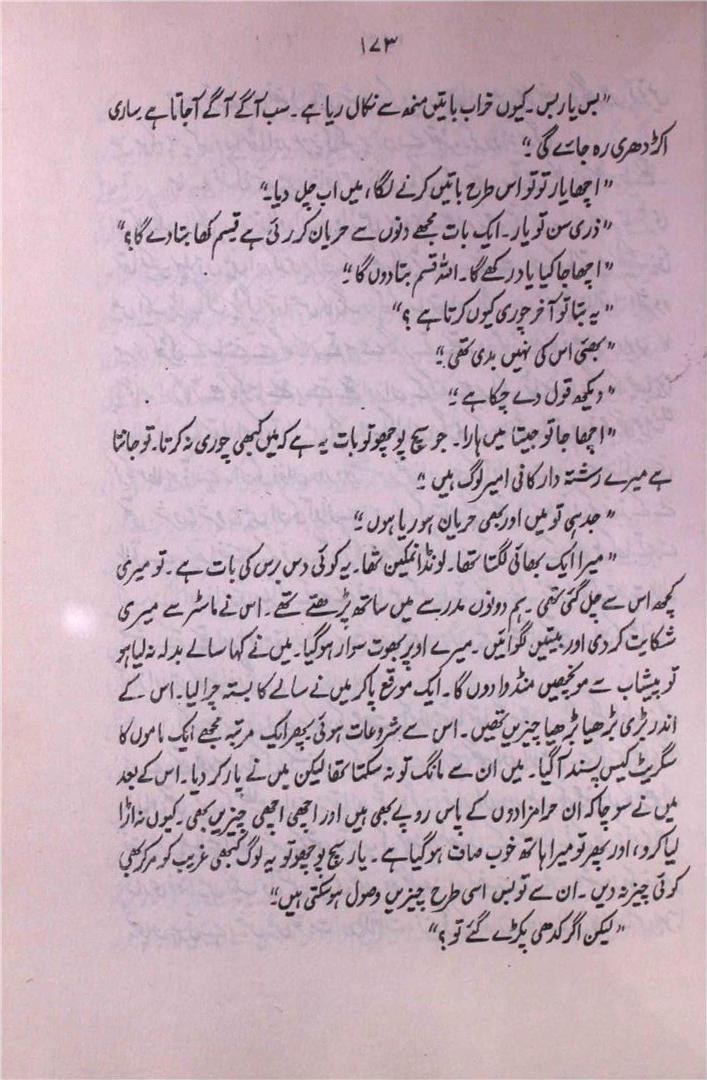 ۱۷۳
”بس یار بس۔ کیوں خراب باتیں منھ سے نکال ریا ہے۔ سب آگے آگے آجاتا ہے ساری
اکڑ دھری رہ جائے گی۔“
”اچھا یار تو تو اس طرح باتیں کرنے لگا، میں اب چل دیا۔“
”ذری سن تو یار۔ ایک بات مجھے دنوں سے حریان کر رئی ہے قسیم کھا بتا دے گا؟“
”اچھا جا کیا یاد رکھے گا۔ اللہ قسم بتا دوں گا۔“
”یہ بتا تو آخر چوری کیوں کرتا ہے ؟“
”بھئی اس کی نہیں بدی تھی۔“
”دیکھ قول دے چکا ہے۔“
”اچھا جا تو جیتا میں ہارا۔ جو سچ پوچھو تو بات یہ ہے کہ میں کبھی چوری نہ کرتا۔ تو جانتا
ہے میرے رشتہ دار کافی امیر لوگ ہیں۔“
”جد ہی تو میں اور بھی حریان ہو ریا ہوں۔“
”میرا ایک بھائی لگتا تھا۔ لونڈا نمکین تھا۔ یہ کوئی دس برس کی بات ہے۔ تو میری
کچھ اس سے چل گئی تھی۔ ہم دونوں مدرسے میں ساتھ پڑھتے تھے۔ اس نے ماسٹر سے میری
شکایت کر دی اور بیتیں گوائیں۔ میرے اوپر بھوت سوار ہو گیا۔ میں نے کہا سالے بدلہ نہ لیا ہو
تو پیشاب سے مونچھیں منڈوا دوں گا۔ ایک موقع پا کر میں نے سالے کا بستہ چرا لیا۔ اس کے
اندر بڑی بڑھیا بڑھیا چیزیں تھیں۔ اس سے شروعات ہوئی پھر ایک مرتبہ مجھے ایک ماموں کا
سگریٹ کیس پسند آگیا۔ میں ان سے مانگ تو نہ سکتا تھا لیکن میں نے پار کر دیا۔ اس کے بعد
میں نے سوچا کہ ان حرامزادوں کے پاس روپے بھی ہیں اور اچھی اچھی چیزیں بھی۔ کیوں نہ اڑا
لیا کرو، اور پھر تو میرا ہاتھ خوب صاف ہو گیا ہے۔ یار سچ پوچھو تو یہ لوگ کبھی غریب کو مر کر بھی
کوئی چیز نہ دیں۔ ان سے تو بس اسی طرح چیزیں وصول ہو سکتی ہیں۔“
”لیکن اگر کدھی پکڑے گئے تو؟“